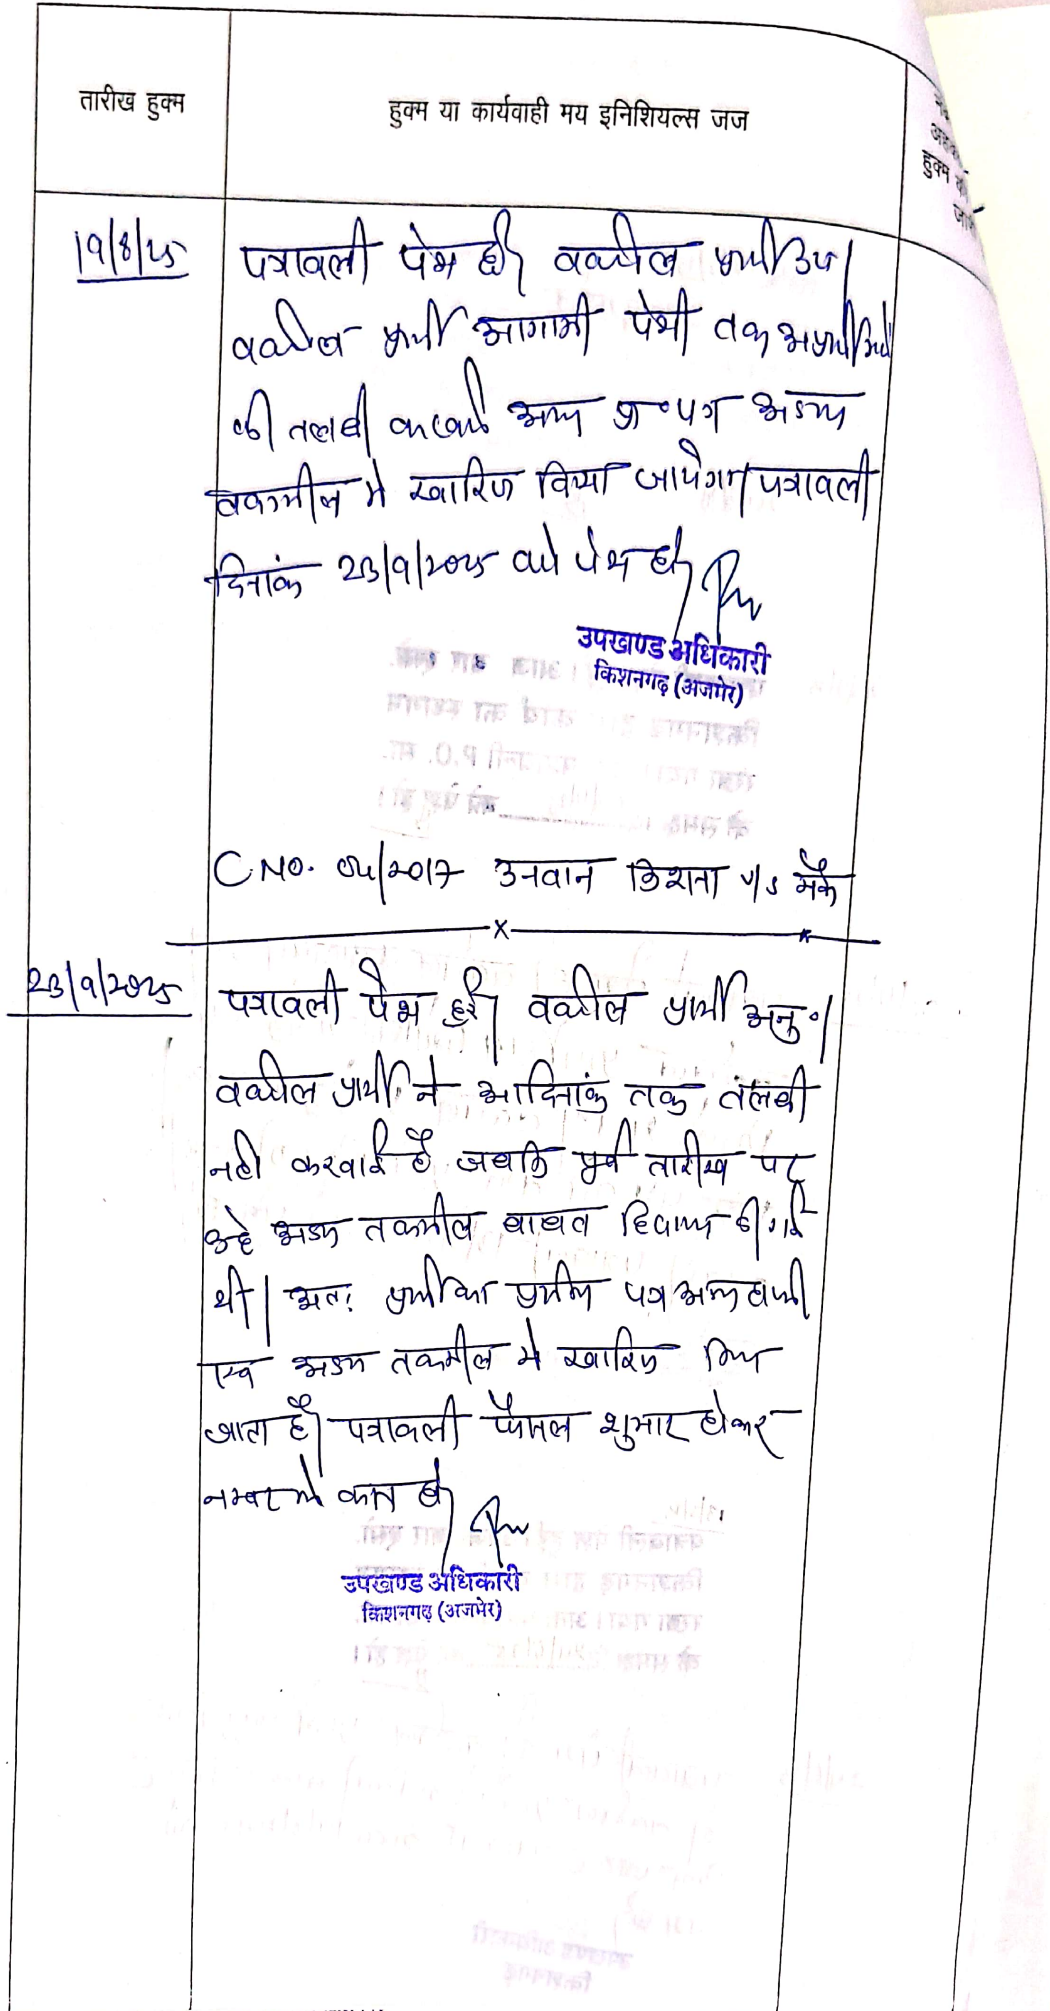 तारीख हुक्म
हुक्म या कार्यवाही मय इनिशियल्स जज
हुक्म
19/8/25
पत्रावली पेश हुई। वकील प्रार्थी उप।
वकील प्रार्थी आगामी पेशी तक अप्रार्थीगणों
की तलबी करवावें अन्य प्रा०पत्र अदम
तकमील मे खारिज किया जायेगा। पत्रावली
दिनांक 23/9/2025 को पेश हो।
उपखण्ड अधिकारी
किशनगढ़ (अजमेर)
C.NO. 04/2017 उनवान किशना v/s
23/9/2025
पत्रावली पेश हुई। वकील प्रार्थी अनु०।
वकील प्रार्थी ने आदिनांक तक तलबी
नही करवाई है जबकि पूर्व तारीख पर
उन्हे अदम तकमील बाबत हिदायत दी गई
थी। अतः प्रार्थी का प्रार्थना पत्र अदम हाजरी
एवं अदम तकमील मे खारिज किया
जाता है। पत्रावली फैसल शुमार होकर
नम्बर से कम हो।
उपखण्ड अधिकारी
किशनगढ़ (अजमेर)